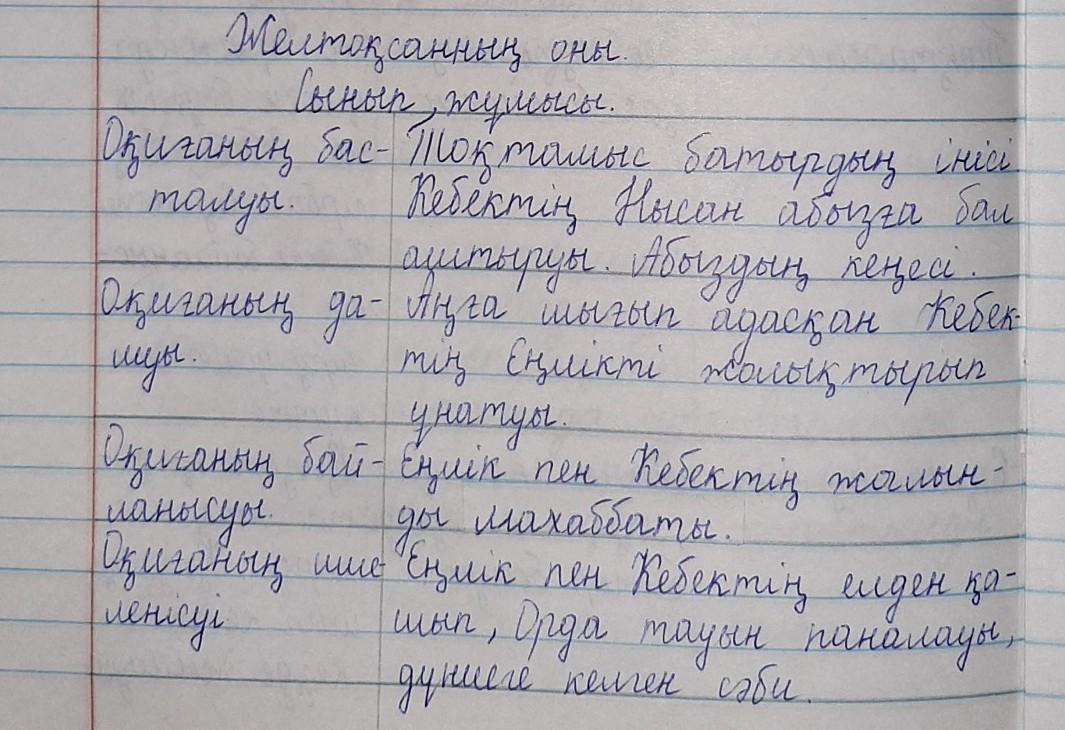 Желтоқсанның оны.
Сынып жұмысы.
Оқиғаның бас-
талуы.
Тоқтамыс батырдың інісі
Кебектің Нысан абызға бал
аштыруы. Абыздың кеңесі.
Оқиғаның да-
муы.
Аңға шығып адасқан Кебек-
тің Еңлікті жолықтырып
ұнатуы.
Оқиғаның бай-
ланысуы.
Еңлік пен Кебектің жалын-
ды махаббаты.
Оқиғаның шие-
ленісуі
Еңлік пен Кебектің елден қа-
шып, Орда тауын паналауы,
дүниеге келген сәби.